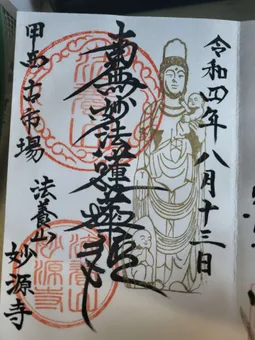 令和四年八月十三日
南無妙法蓮華経
甲西古市場
法養山 妙源寺